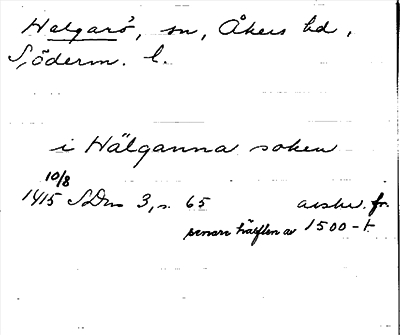 Helgarö, sn, Åkers hd,
Söderm. l.
i Hälganna soken
10/8
1415 SDns 3, s. 65 avskr. fr.
senare hälften av 1500-t.